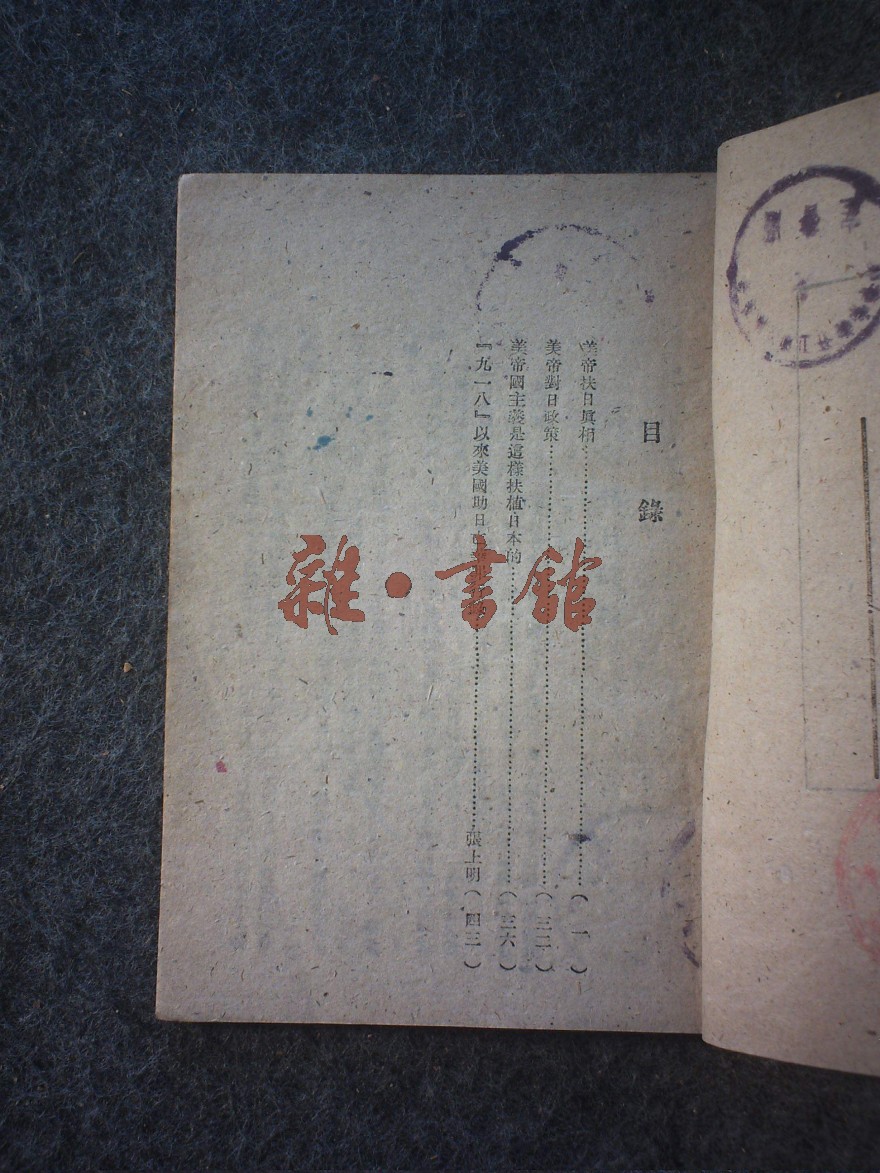 目錄
美帝扶日眞相……（一）
美帝對日政策……（三二）
美帝國主義是這樣扶植日本的……（三六）
『九一八』以來美國助日……張上明（四三）
雜·書館